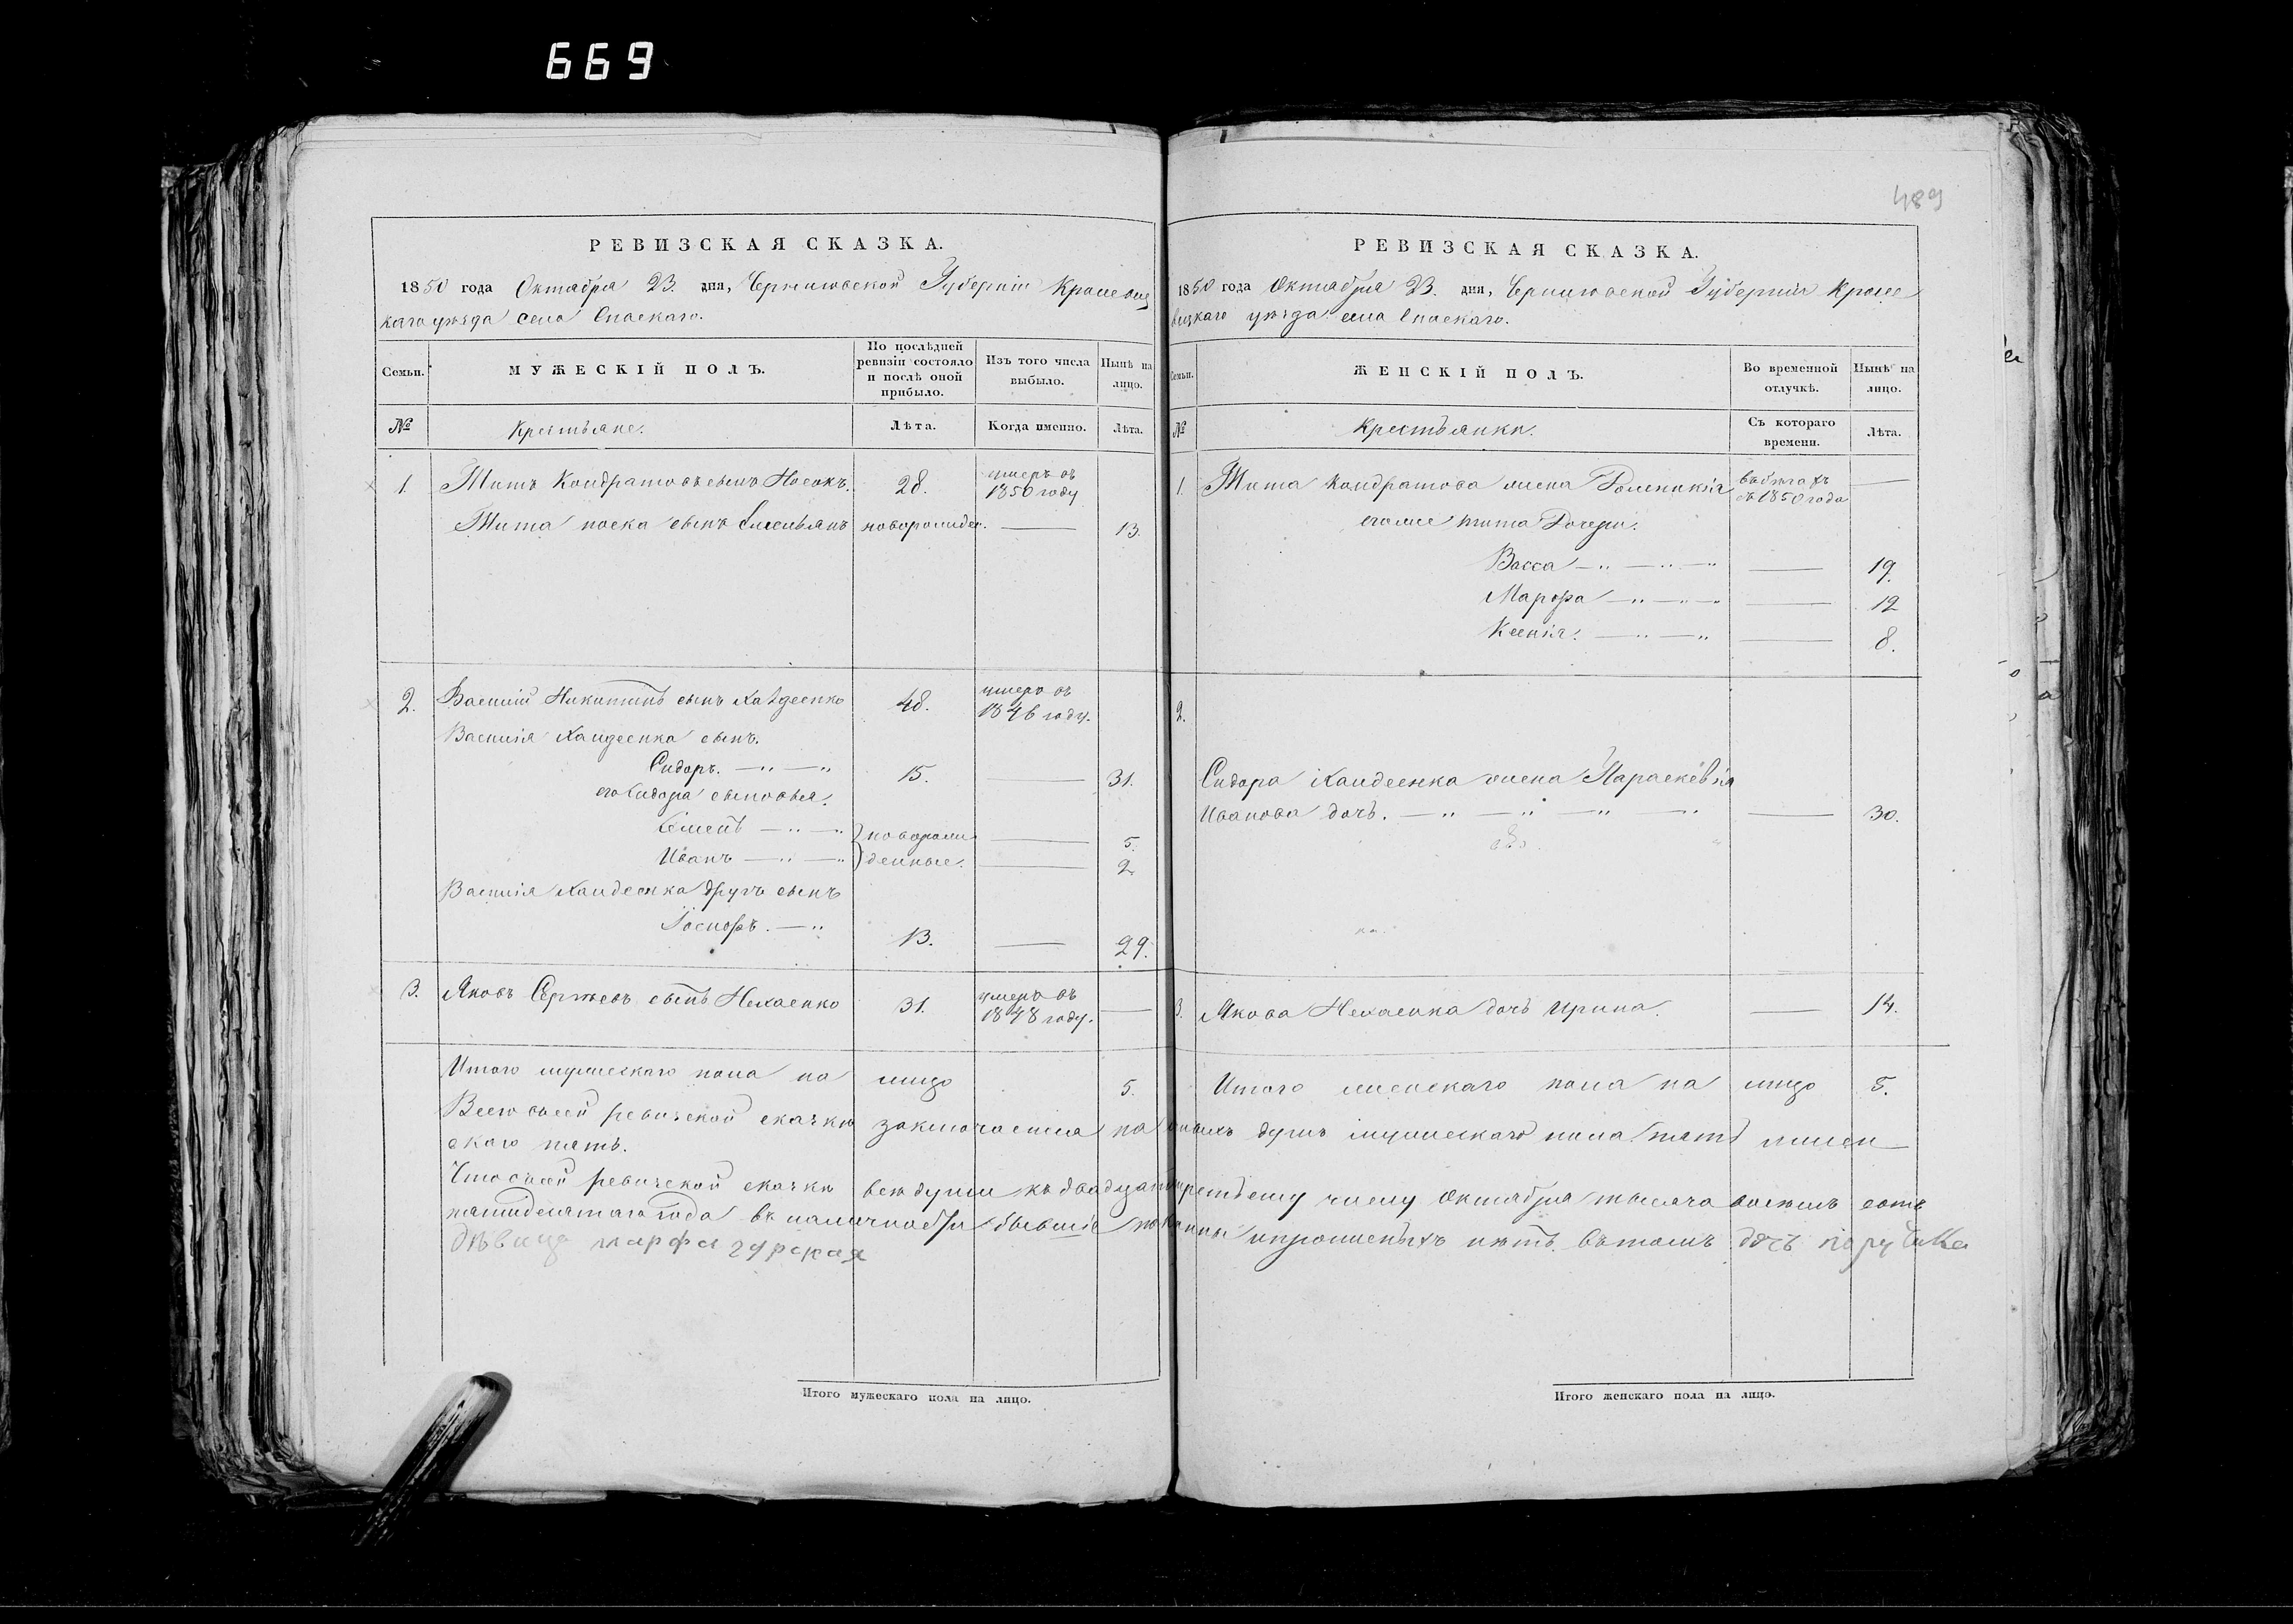 669
489
РЕВИЗСКАЯ СКАЗКА.
1850 года Октября 23. дня, Черниговской Губернiи Кролевец
каго уѣзда села Спаскаго.
Семьи. МУЖЕСКIЙ ПОЛЪ. По послѣдней ревизiи состояло и послѣ оной прибыло. Изъ того числа выбыло. Нынѣ на лицо.
№ Крестьяне. Лѣта. Когда именно. Лѣта.
1. Титъ Кондратовъ сынъ Носокъ. 28. умеръ въ 1850 году
Тита носка сынъ Емельянъ новорожден. — 13.
2. Василiй Никитинъ сынъ 48. умеръ въ 1846 году.
Василiя Хандеенка сынъ.
Сидоръ. — „ — „ 15. — 31.
его Сидора сыновья.
Семенъ — „ — „ новорож — 5.
Иванъ — „ — „ денные. — 2
Василiя Хандеенка другъ сынъ
Iосифъ. — „ 13. — 29.
3. Яковъ Сергѣевъ сынъ Нехаенко 31. умеръ въ 1848 году. —
Итого мужескаго пола на лицо 5.
РЕВИЗСКАЯ СКАЗКА.
1850 года Октября 23. дня, Черниговской Губернiи Кроле
вецкаго уѣзда села Спаскаго.
Семьи. ЖЕНСКIЙ ПОЛЪ. Во временной отлучкѣ. Нынѣ на лицо.
№ Крестьянки. Съ котораго времени. Лѣта.
1. Тита Кондратова жена въ бѣгахъ съ 1850 года —
его же тита Дочери.
Васса — „ — „ — „ — 19.
Марфа — „ — „ — „ — 12
Ксенiя. — „ — „ — 8.
2.
Сидора Хандеенка жена Параскевiя
Иванова дочь. — „ — „ — „ — „ — 30.
3. Якова Нехаенка дочь Ирина. — 14.
Итого женскаго пола на лицо 5.
Всего всей ревизской сказки заключается на душъ мужескаго пола пять женс
скаго пять.
Что въ сей ревизской сказки всѣ души къ двадцать третьему числу Октября тысяча восемь сотъ
пятидесятаго года въ наличности бывшiе показаны и пропущеныхъ нѣтъ. Вътомъ дочь поручика
дѣвица марфа гурская
Итого мужескаго пола на лицо.
Итого женскаго пола на лицо.